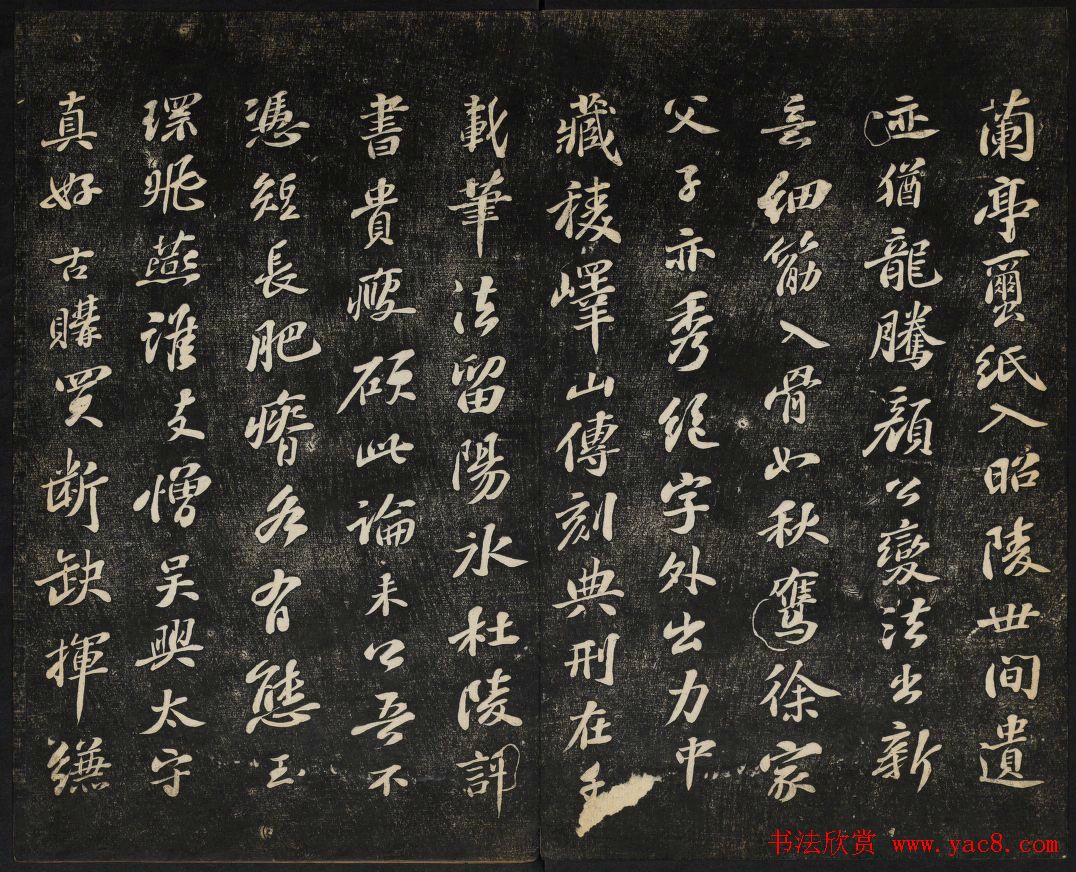 蘭亭蠒紙入昭陵世間遺
迹猶龍騰顏公變法出新
意細筋入骨如秋鷹徐家
父子亦秀絕字外出力中
藏稜嶧山傳刻典刑在千
載筆法留陽氷杜陵評
書貴瘦硬此論未公吾不
憑短長肥瘠各有態玉
環飛燕誰敢憎吳興太守
真好古購買断缺揮縑
书法欣赏 www.yac8.com